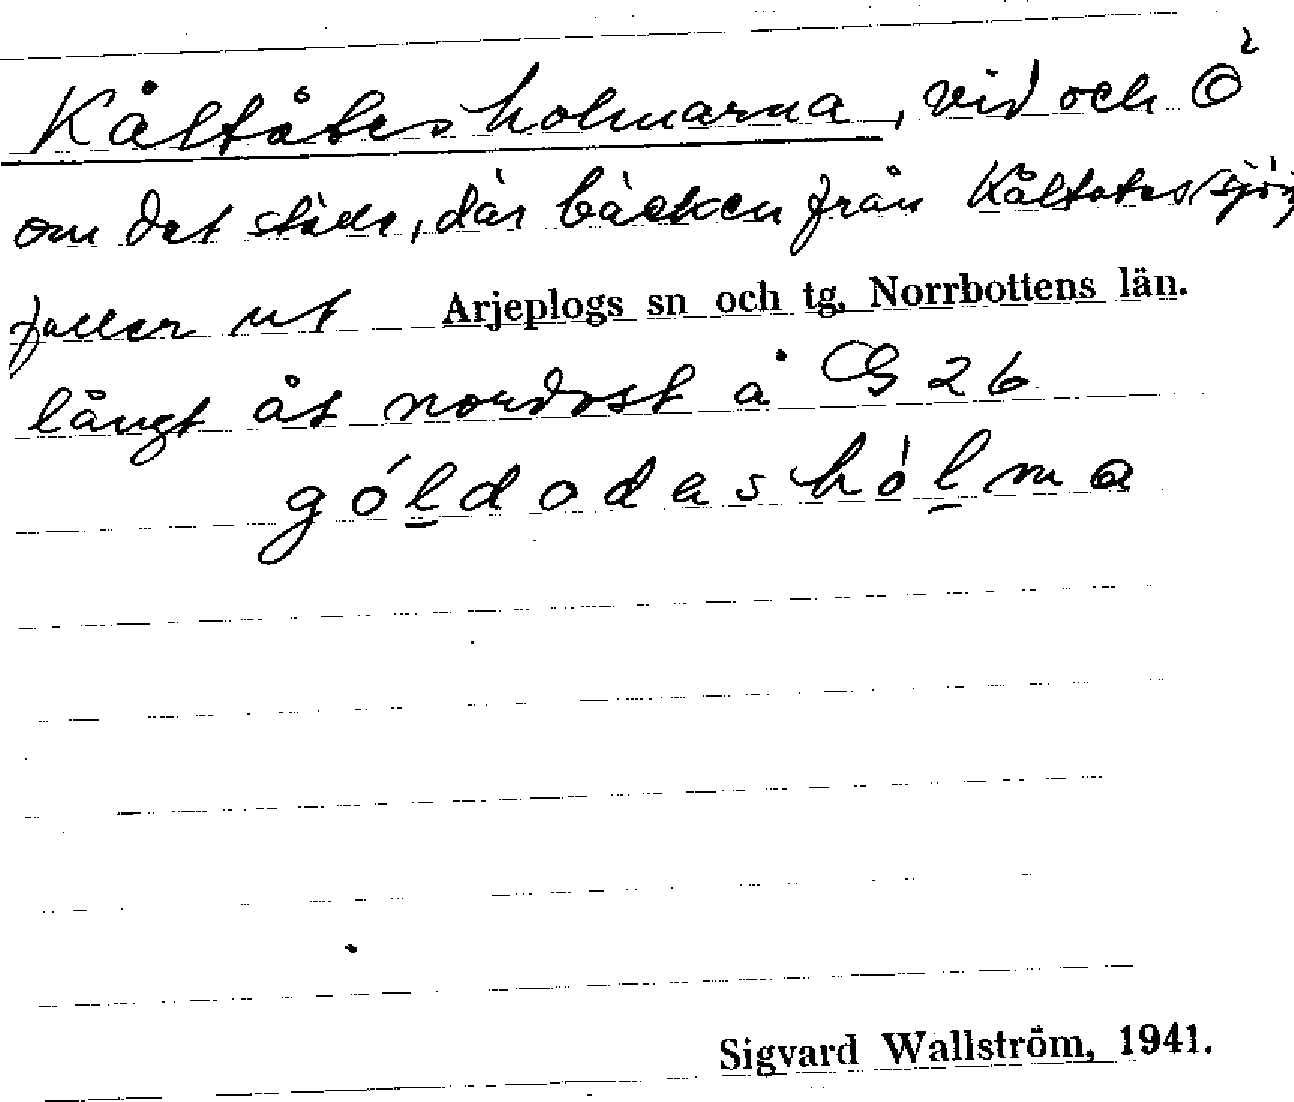 Kåltåtesholmarna, vid och Ö
om det ställe, där bäcken från Kåltåtessjön
faller ut Arjeplogs sn och tg, Norrbottens län.
långt åt nordost å G 26
góldodasholma
Sigvard Wallström, 1941.